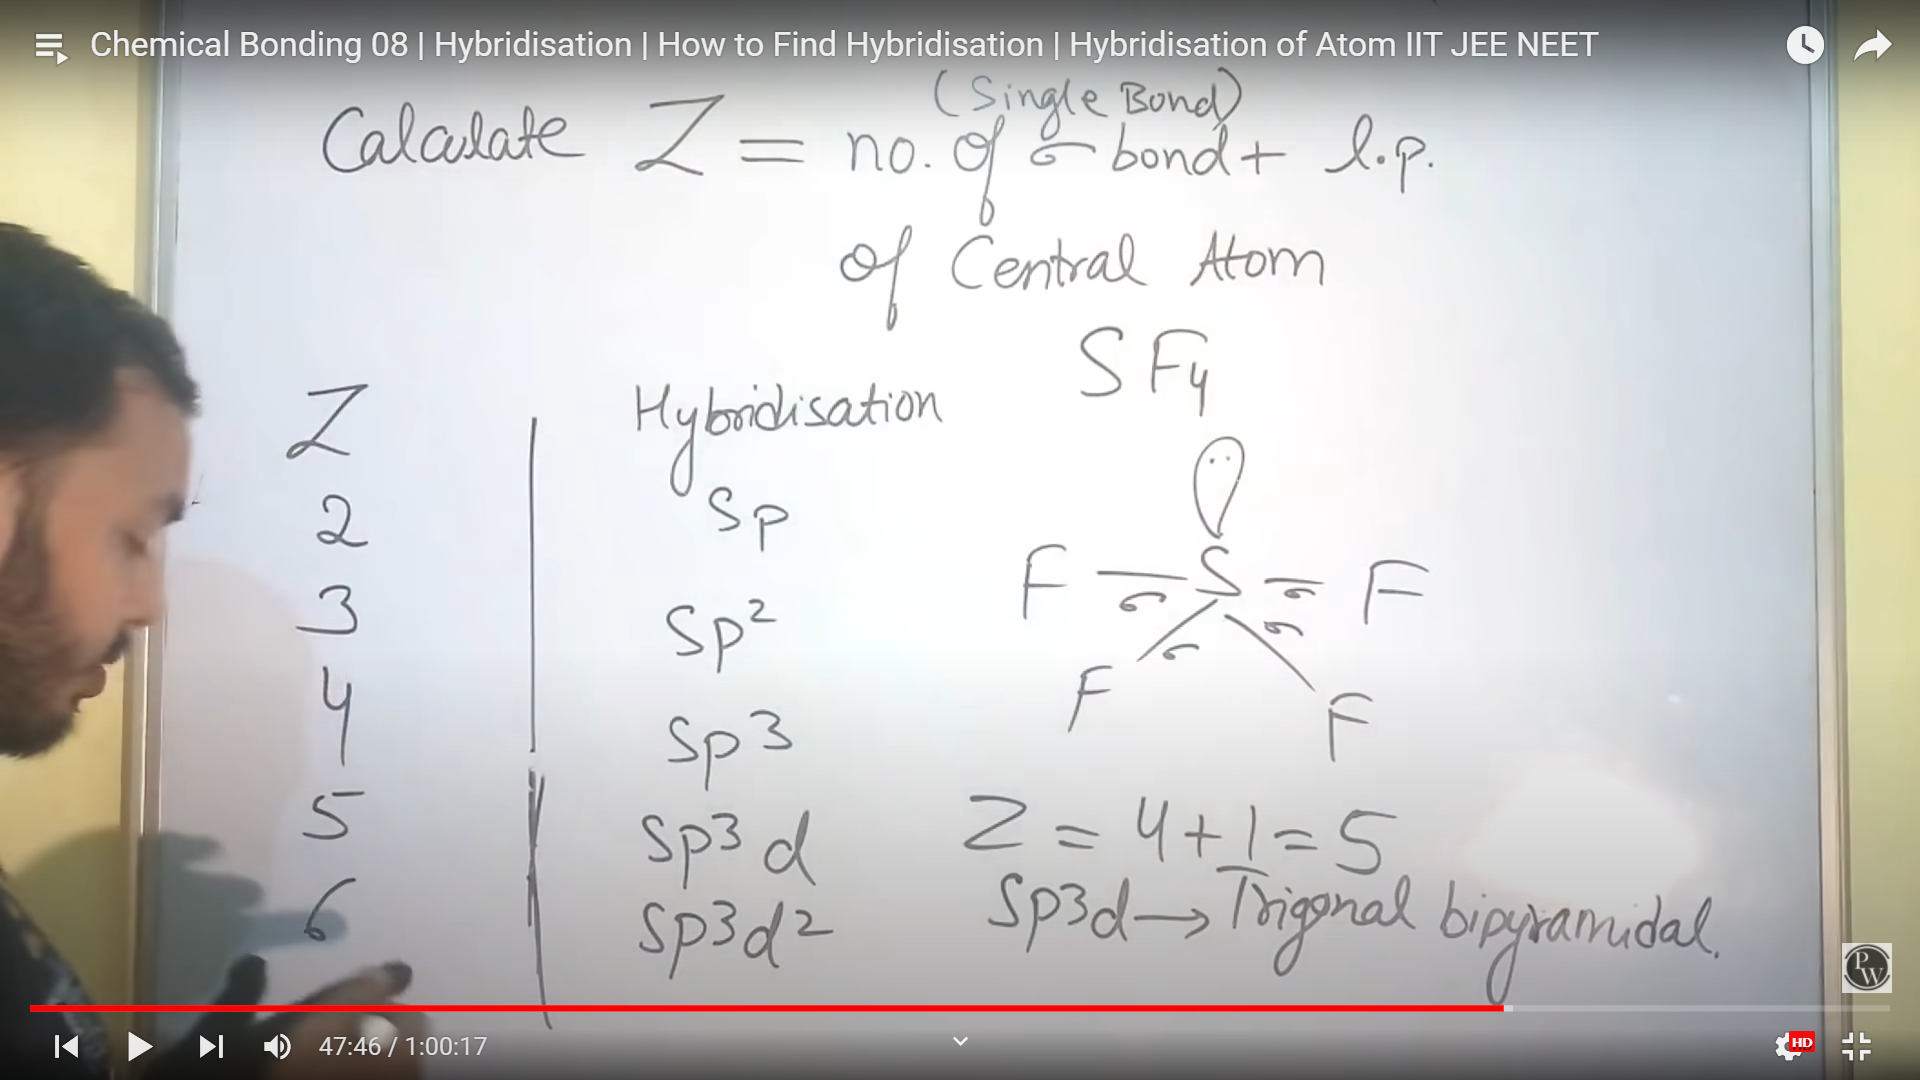 Chemical Bonding 08 | Hybridisation | How to Find Hybridisation | Hybridisation of Atom IIT JEE NEET
(Single Bond)
Calculate Z = no. of σ bond + l.p.
of Central Atom
SF4
Z Hybridisation
2 Sp
3 Sp²
4 Sp3
5 Sp3d
6 Sp3d2
F S F
σ σ
σ σ
F F
Z = 4+1 = 5
Sp3d → Trigonal bipyramidal.
PW
47:46 / 1:00:17
HD